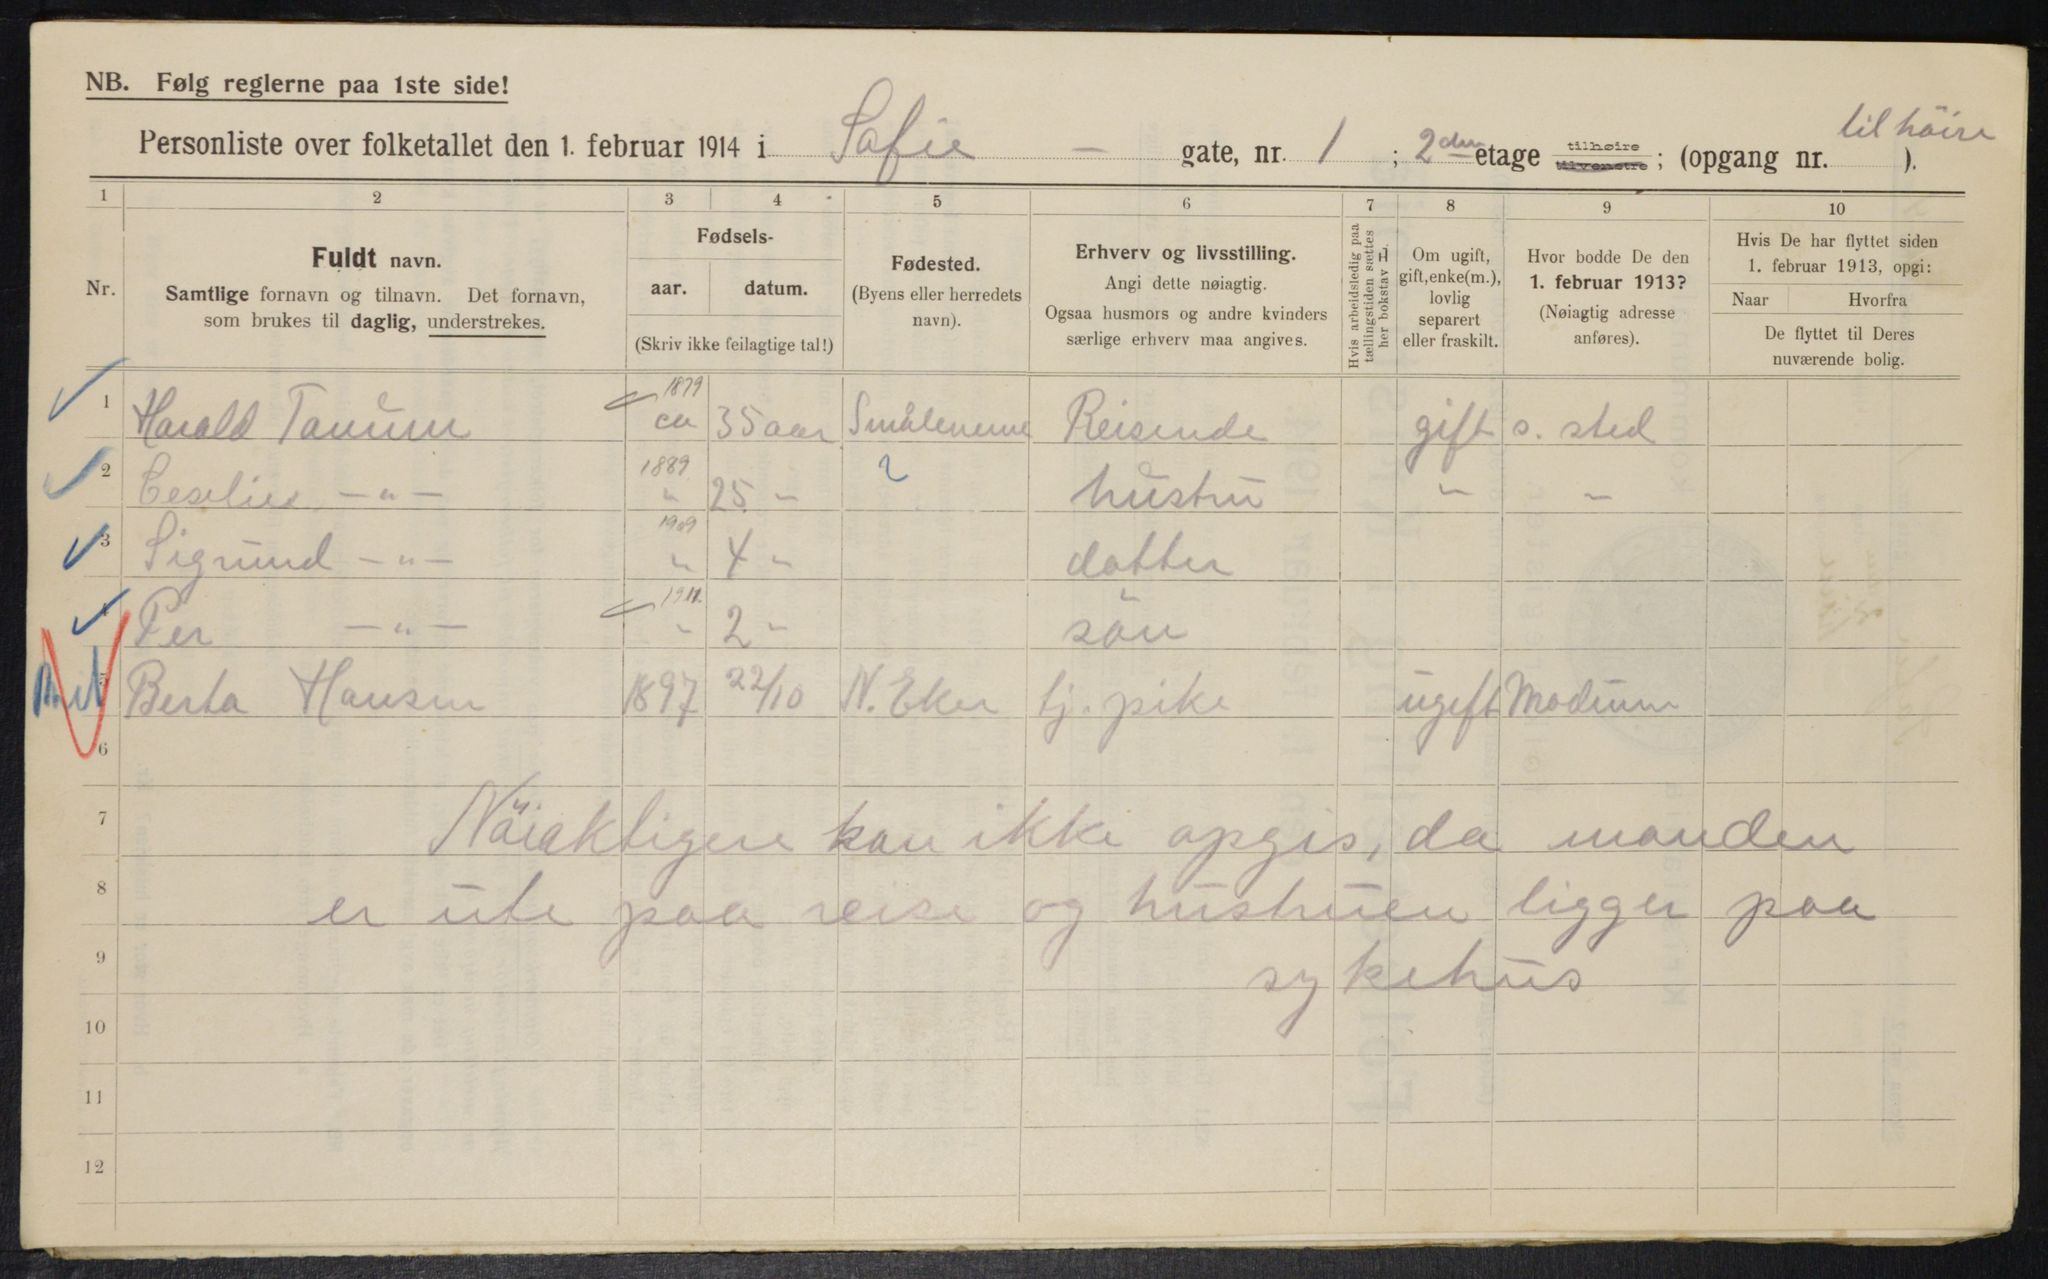 NB. Følg reglerne paa 1ste side!
til höire
Personliste over folketallet den 1. februar 1914 i Safie - gate, nr. 1 ; 2den etage tilhøire tilvenstre ; (opgang nr. ).
1 2 3 4 5 6 7 8 9 10
Nr.
Fuldt navn.
Samtlige fornavn og tilnavn. Det fornavn,
som brukes til daglig, understrekes.
Fødsels-
aar. datum.
(Skriv ikke feilagtige tal!)
Fødested.
(Byens eller herredets
navn).
Erhverv og livsstilling.
Angi dette nøiagtig.
Ogsaa husmors og andre kvinders
særlige erhverv maa angives.
Hvis arbeidsledig paa
tællingstiden sættes
her bokstav L.
Om ugift,
gift, enke(m.),
lovlig
separert
eller fraskilt.
Hvor bodde De den
1. februar 1913?
(Nøiagtig adresse
anføres).
Hvis De har flyttet siden
1. februar 1913, opgi:
Naar Hvorfra
De flyttet til Deres
nuværende bolig.
1879
1 Harald Tanum ca 35 aar Smålenene Reisende gift s. sted
1889
2 Ceselie -"- " 25 " ? hustru " "
1909
3 Sigrund -"- " 4 " datter
1911.
4 Per -"- " 2 " sön
5 Berta Hansen 1897 22/10 N. Eker tj. pike ugift Modum
6
7 Nöiaktigere kan ikke opgis, da manden
8 er ute paa reise og hustruen ligger paa
9 sykehus
10
11
12